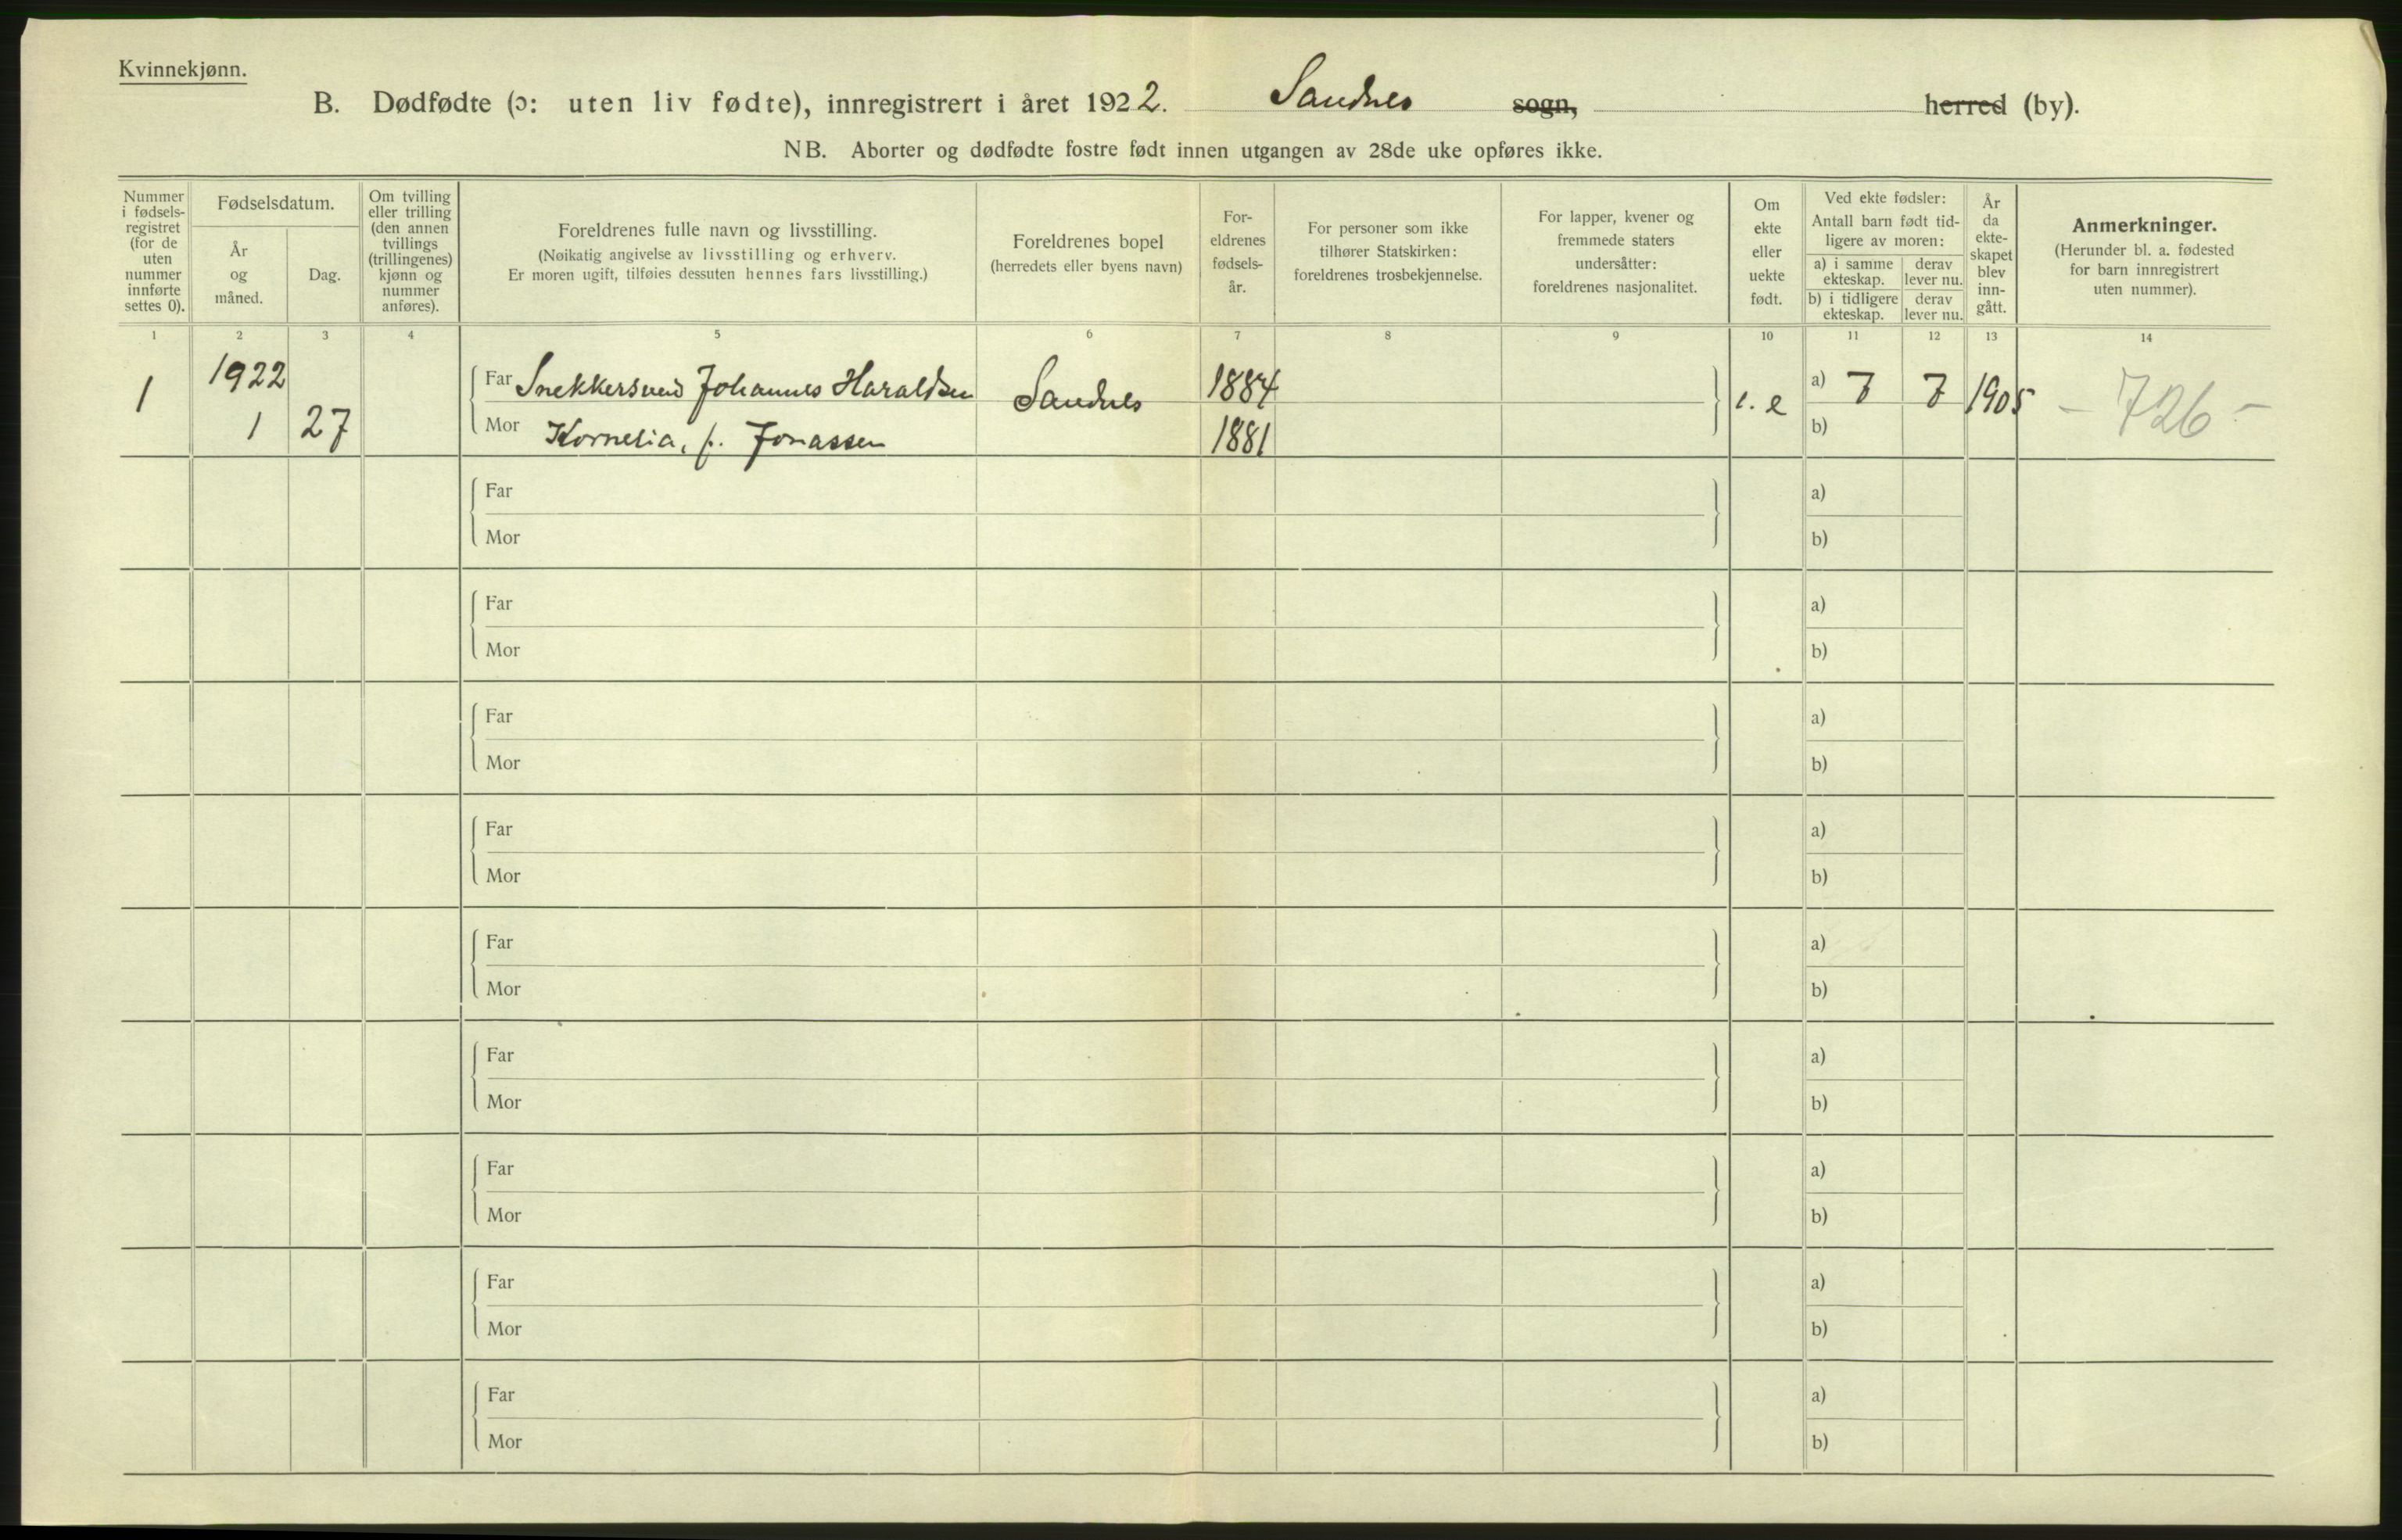 Kvinnekjønn.
B. Dødfødte (ɔ: uten liv fødte), innregistrert i året 1922. Sandnes sogn, herred (by).
NB. Aborter og dødfødte fostre født innen utgangen av 28de uke opføres ikke.
Nummer
i fødsels-
registret
(for de
uten
nummer
innførte
settes 0).
Fødselsdatum.
År
og
måned.
Dag.
Om tvilling
eller trilling
(den annen
tvillings
(trillingenes)
kjønn og
nummer
anføres).
Foreldrenes fulle navn og livsstilling.
(Nøikatig angivelse av livsstilling og erhverv.
Er moren ugift, tilføies dessuten hennes fars livsstilling.)
Foreldrenes bopel
(herredets eller byens navn)
For-
eldrenes
fødsels-
år.
For personer som ikke
tilhører Statskirken:
foreldrenes trosbekjennelse.
For lapper, kvener og
fremmede staters
undersåtter:
foreldrenes nasjonalitet.
Om
ekte
eller
uekte
født.
Ved ekte fødsler:
Antall barn født tid-
ligere av moren:
a) i samme
ekteskap.
derav
lever nu.
b) i tidligere
ekteskap.
derav
lever nu.
År
da
ekte-
skapet
blev
inn-
gått.
Anmerkninger.
(Herunder bl. a. fødested
for barn innregistrert
uten nummer).
1 2 3 4 5 6 7 8 9 10 11 12 13 14
1 1922 Far Snekkersvend Johannes Haraldsen Sandnes 1884 e. a) 7 7 1905 - 726 -
1 27 Mor Kornelia, f. Jonassen 1881 b)
Far a)
Mor b)
Far a)
Mor b)
Far a)
Mor b)
Far a)
Mor b)
Far a)
Mor b)
Far a)
Mor b)
Far a)
Mor b)
Far a)
Mor b)
Far a)
Mor b)